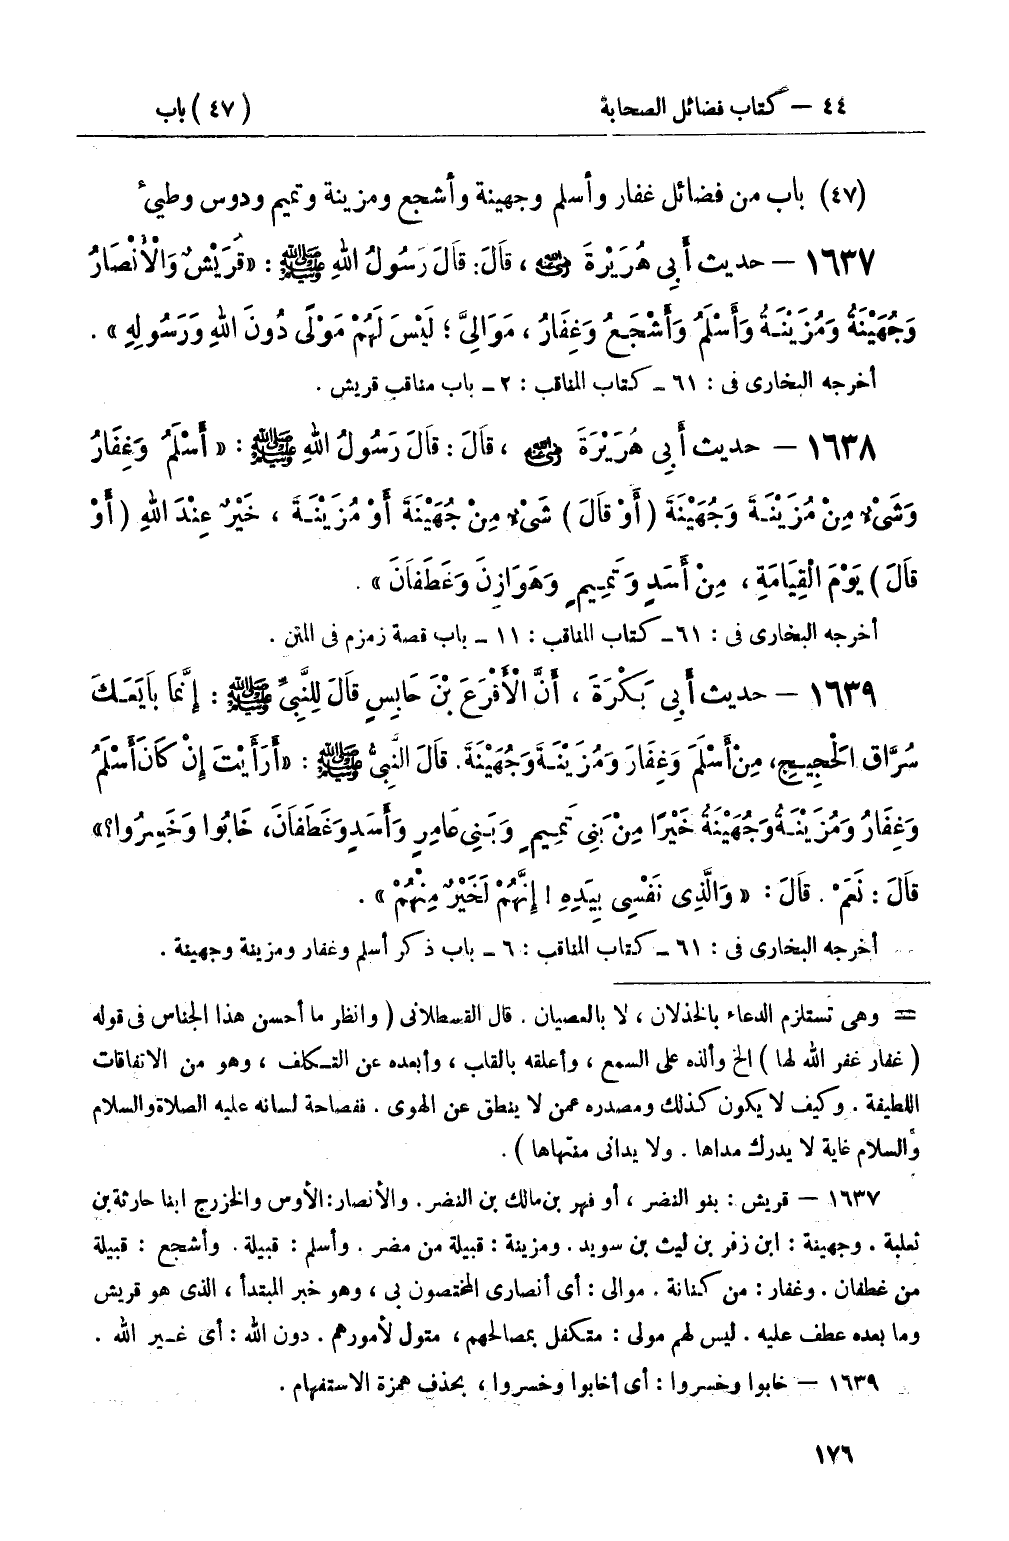 ٤٤ – كتاب فضائل الصحابة (٤٧) باب
(٤٧) باب من فضائل غفار وأسلم وجهينة وأشجع ومزينة وتميم ودوس وطيء
١٦٣٧ – حديث أَبِي هُرَيْرَةَ رضي الله عنه ، قَالَ: قَالَ رَسُولُ اللهِ ﷺ : «قُرَيْشٌ وَالْأَنْصَارُ
وَجُهَيْنَةُ وَمُزَيْنَةُ وَأَسْلَمُ وَأَشْجَعُ وَغِفَارُ ، مَوَالِيَّ ؛ لَيْسَ لَهُمْ مَوْلًى دُونَ اللهِ وَرَسُولِهِ » .
أخرجه البخارى فى : ٦١ ـ كتاب المناقب : ٢ ـ باب مناقب قريش .
١٦٣٨ – حديث أَبِي هُرَيْرَةَ رضي الله عنه ، قَالَ : قَالَ رَسُولُ اللهِ ﷺ : « أَسْلَمُ وَغِفَارُ
وَشَىْءٌ مِنْ مُزَيْنَةَ وَجُهَيْنَةَ ( أَوْ قَالَ ) شَىْءٌ مِنْ جُهَيْنَةَ أَوْ مُزَيْنَةَ ، خَيْرٌ عِنْدَ اللهِ ( أَوْ
قَالَ ) يَوْمَ الْقِيَامَةِ ، مِنْ أَسَدٍ وَتَمِيمٍ وَهَوَازِنَ وَغَطَفَانَ » .
أخرجه البخارى فى : ٦١ ـ كتاب المناقب : ١١ ـ باب قصة زمزم فى المتن .
١٦٣٩ – حديث أَبِي بَكْرَةَ ، أَنَّ الْأَقْرَعَ بْنَ حَابِسٍ قَالَ لِلنَّبِيِّ ﷺ : إِنَّمَا بَايَعَكَ
سُرَّاق الْحَجِيجِ، مِنْ أَسْلَمَ وَغِفَارَ وَمُزَيْنَةَ وَجُهَيْنَةَ. قَالَ النَّبِيُّ ﷺ : «أَرَأَيْتَ إِنْ كَانَ أَسْلَمُ
وَغِفَارُ وَمُزَيْنَةُ وَجُهَيْنَةُ خَيْرًا مِنْ بَنِي تَمِيمٍ وَبَنِي عَامِرٍ وَأَسَدٍ وَغَطَفَانَ، خَابُوا وَخَسِرُوا؟»
قَالَ : نَعَمْ . قَالَ : « وَالَّذِى نَفْسِى بِيَدِهِ ! إِنَّهُمْ لَخَيْرٌ مِنْهُمْ » .
أخرجه البخارى فى : ٦١ ـ كتاب المناقب : ٦ ـ باب ذكر أسلم وغفار ومزينة وجهينة .
= وهى تستلزم الدعاء بالخذلان ، لا بالعصيان . قال القسطلانى ( وانظر ما أحسن هذا الجناس فى قوله
( غفار غفر الله لها ) الخ وألذه على السمع ، وأعلقه بالقلب ، وأبعده عن التكلف ، وهو من الاتفاقات
اللطيفة . وكيف لا يكون كذلك ومصدره عمن لا ينطق عن الهوى . ففصاحة لسانه عليه الصلاة والسلام
والسلام غاية لا يدرك مداها . ولا يدانى منتهاها ) .
١٦٣٧ – قريش : بنو النضر ، أو فهر بن مالك بن النضر . والأنصار: الأوس والخزرج ابنا حارثة بن
ثعلبة . وجهينة : ابن زفر بن ليث بن سويد . ومزينة : قبيلة من مضر . وأسلم : قبيلة . وأشجع : قبيلة
من غطفان . وغفار : من كنانة . موالى : أى أنصارى المختصون بى ، وهو خبر المبتدأ ، الذى هو قريش
وما بعده عطف عليه . ليس لهم مولى : متكفل بمصالحهم ، متول لأمورهم . دون الله : أى غير الله .
١٦٣٩ – خابوا وخسروا : أى أخابوا وخسروا ، بحذف همزة الاستفهام .
١٧٦